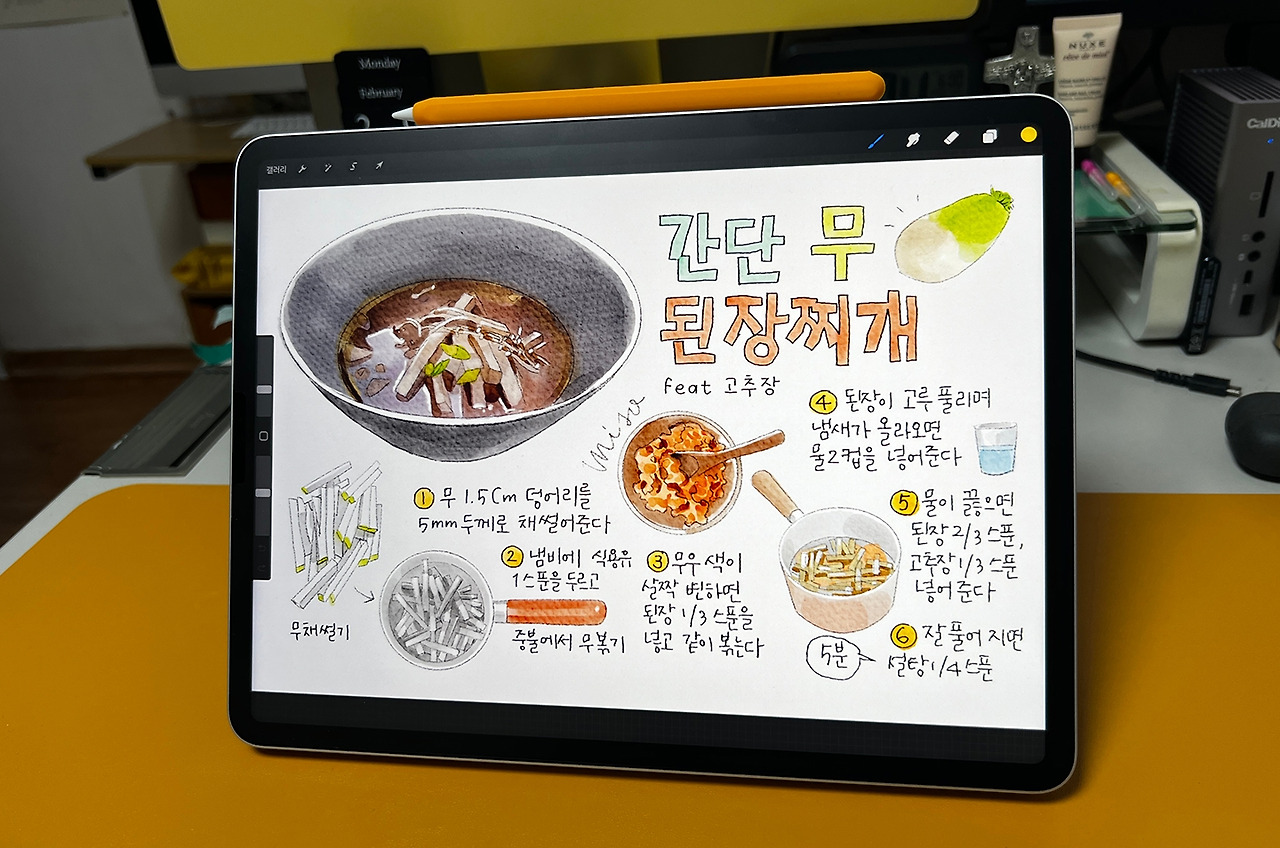 Monday
February
NUXE
rêve de miel
CalDi
갤러리
간단 무
된장찌개
feat 고추장
miso
① 무 1.5cm 덩어리를
5mm 두께로 채썰어준다
무채썰기
② 냄비에 식용유
1스푼을 두르고
중불에서 무볶기
③ 무우 색이
살짝 변하면
된장 1/3 스푼을
넣고 같이 볶는다
④ 된장이 고루 풀리며
냄새가 올라오면
물2컵을 넣어준다
⑤ 물이 끓으면
된장 2/3 스푼,
고추장 1/3 스푼
넣어 준다
⑥ 잘 풀어 지면
설탕 1/4 스푼
5분